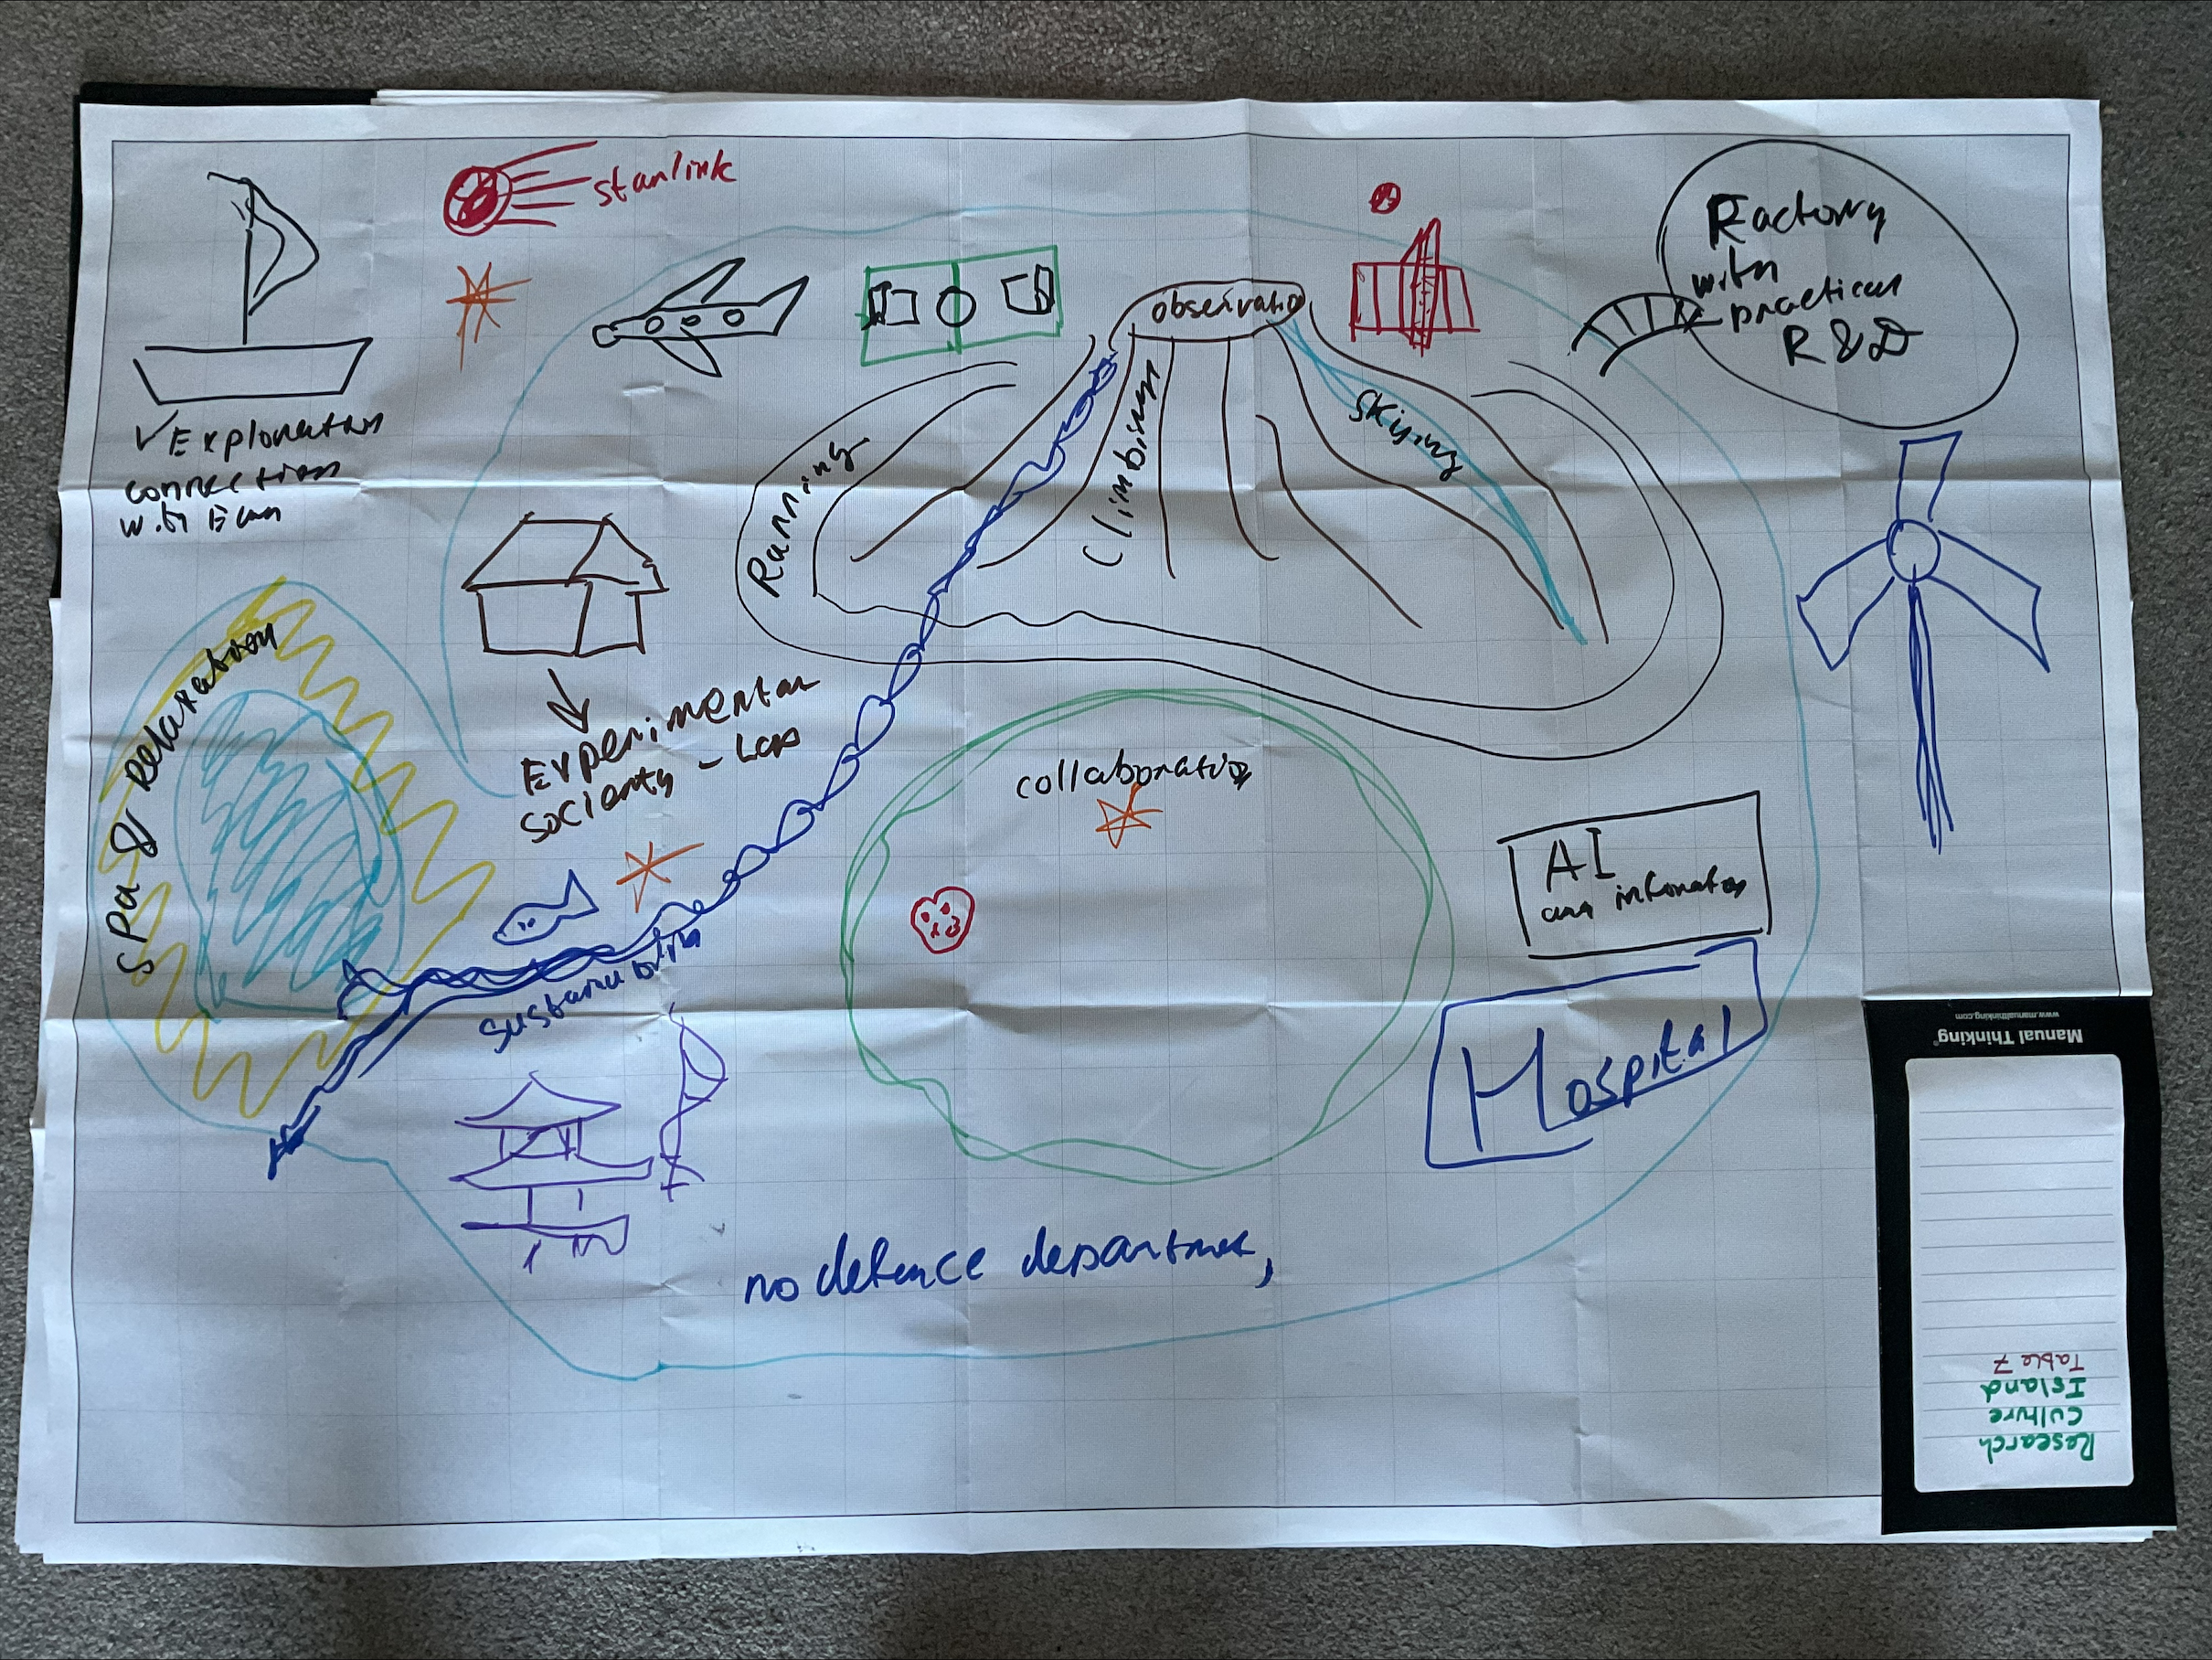 starlink
observatio
Factory
with
practical
R & D
✓ Exploration
connection
with
Running
Climbing
Skying
Spa & Relaxation
Experimental
society - Lab
collaboration
AI
and information
sustainabiliti
Hospital
no defence department,
Manual Thinking®
www.manualthinking.com
Research
Culture
Island
Table 7